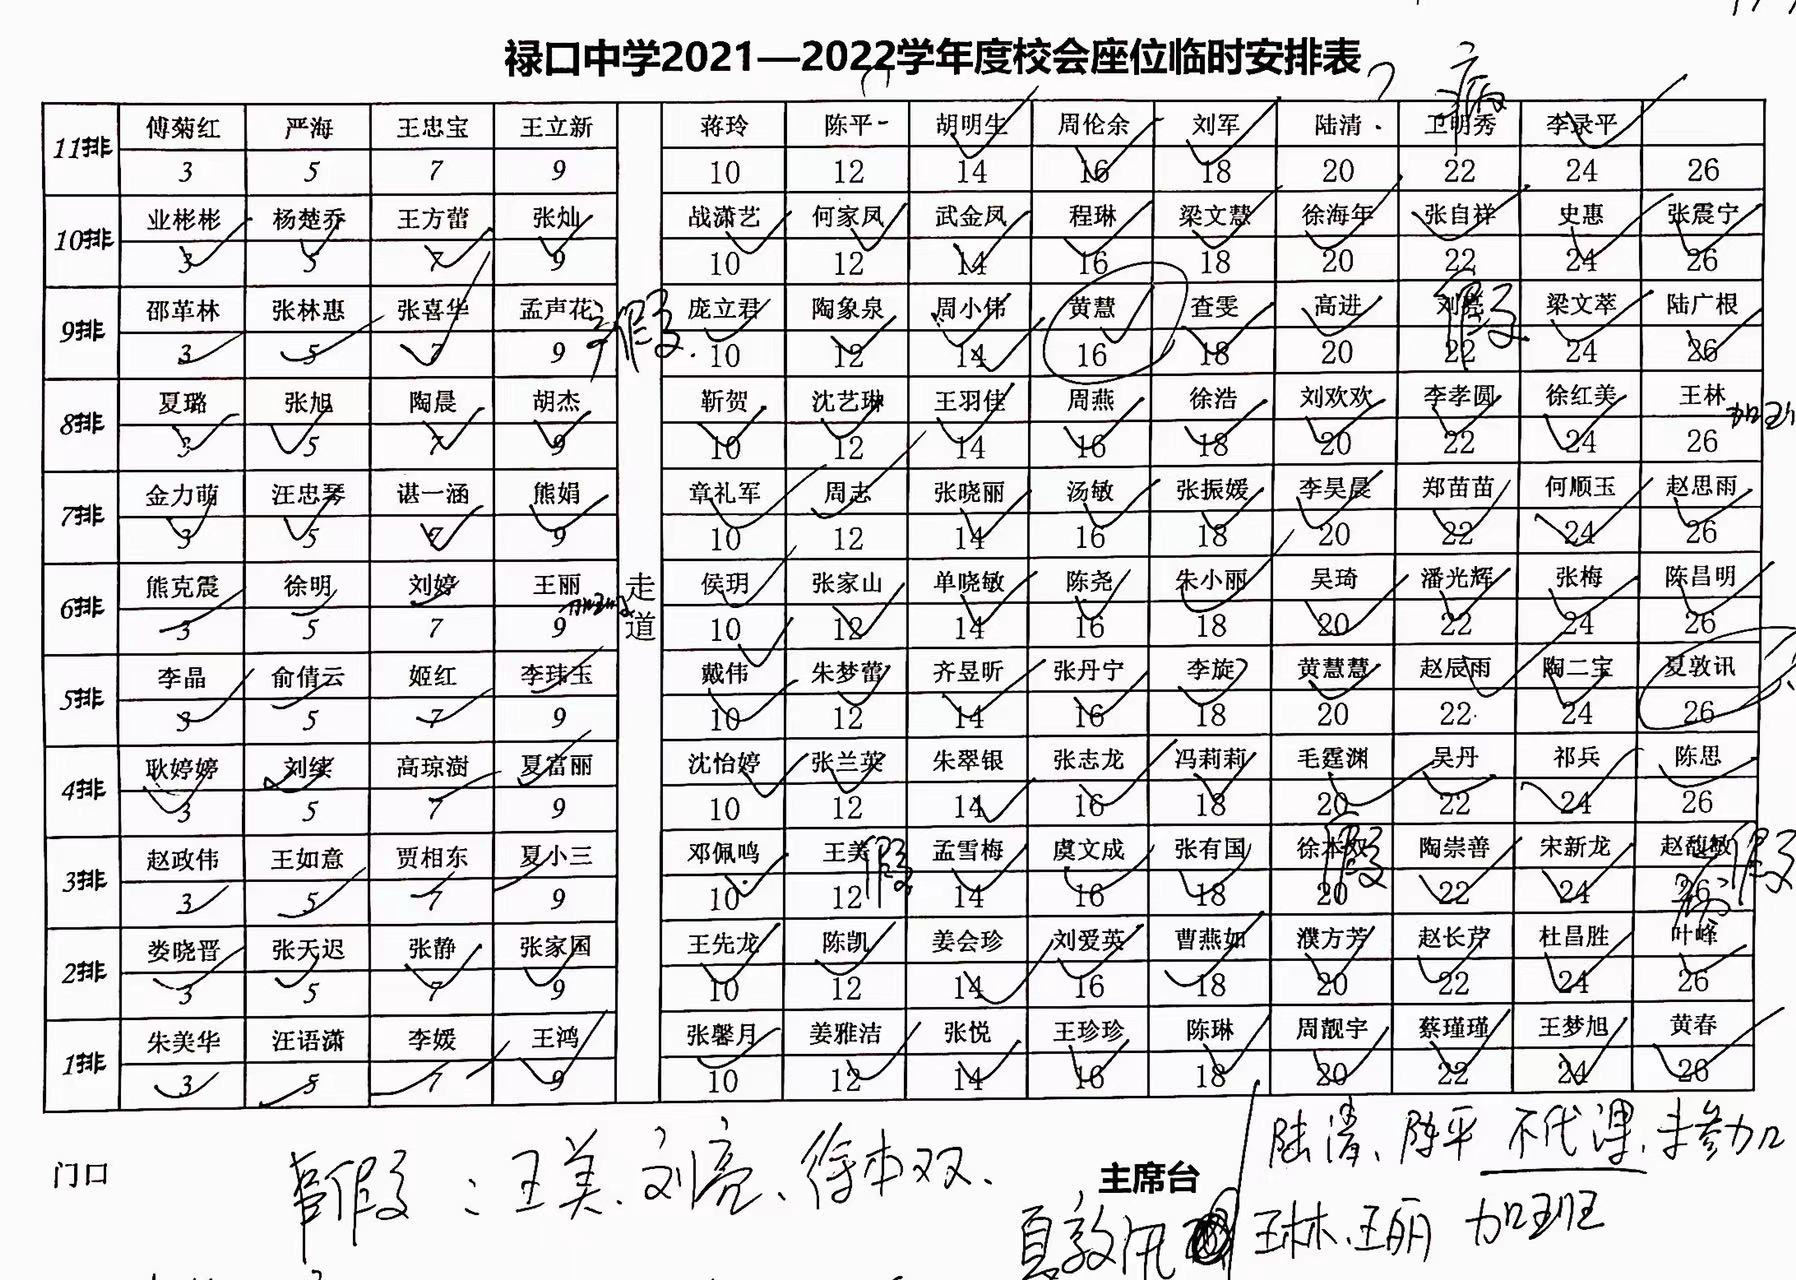 禄口中学2021—2022学年度校会座位临时安排表
病
11排 傅菊红 严海 王忠宝 王立新 蒋玲 陈平 胡明生 周伦余 刘军 陆清 卫明秀 李录平
3 5 7 9 10 12 14 16 18 20 22 24 26
10排 业彬彬 杨楚乔 王方蕾 张灿 战潇艺 何家凤 武金凤 程琳 梁文慧 徐海年 张自祥 史惠 张震宁
3 5 7 9 10 12 14 16 18 20 22 24 26
9排 邵革林 张林惠 张喜华 孟声花 假 庞立君 陶象泉 周小伟 黄慧 查雯 高进 刘亮 假 梁文萃 陆广根
3 5 7 9 10 12 14 16 18 20 22 24 26
8排 夏璐 张旭 陶晨 胡杰 靳贺 沈艺琳 王羽佳 周燕 徐浩 刘欢欢 李孝圆 徐红美 王林 加班
3 5 7 9 10 12 14 16 18 20 22 24 26
7排 金力萌 汪忠琴 谌一涵 熊娟 章礼军 周志 张晓丽 汤敏 张振媛 李昊晨 郑苗苗 何顺玉 赵思雨
3 5 7 9 10 12 14 16 18 20 22 24 26
6排 熊克震 徐明 刘婷 王丽 加班 走道 侯玥 张家山 单晓敏 陈尧 朱小丽 吴琦 潘光辉 张梅 陈昌明
3 5 7 9 10 12 14 16 18 20 22 24 26
5排 李晶 俞倩云 姬红 李玮玉 戴伟 朱梦蕾 齐昱昕 张丹宁 李旋 黄慧慧 赵辰雨 陶二宝 夏敦讯
3 5 7 9 10 12 14 16 18 20 22 24 26
4排 耿婷婷 刘续 高琼澍 夏富丽 沈怡婷 张兰英 朱翠银 张志龙 冯莉莉 毛霆渊 吴丹 祁兵 陈思
3 5 7 9 10 12 14 16 18 20 22 24 26
3排 赵政伟 王如意 贾相东 夏小三 邓佩鸣 王美 假 孟雪梅 虞文成 张有国 徐本双 假 陶崇善 宋新龙 赵馥敏 病假
3 5 7 9 10 12 14 16 18 20 22 24 26
2排 娄晓晋 张天迟 张静 张家国 王先龙 陈凯 姜会珍 刘爱英 曹燕如 濮方芳 赵长芹 杜昌胜 叶峰
3 5 7 9 10 12 14 16 18 20 22 24 26
1排 朱美华 汪语潇 李媛 王鸿 张馨月 姜雅洁 张悦 王珍珍 陈琳 周靓宇 蔡瑾瑾 王梦旭 黄春
3 5 7 9 10 12 14 16 18 20 22 24 26
陆清、陈平 不代课、未参加
门口 主席台
假：王美、刘亮、徐本双、
夏敦讯 王林、王丽 加班